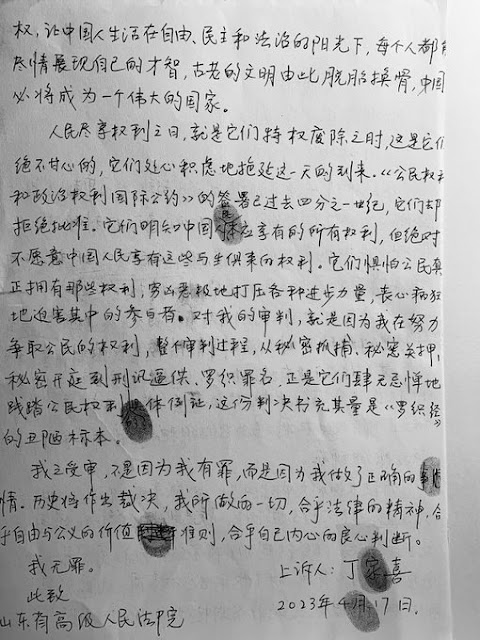 权，让中国人生活在自由、民主和法治的阳光下，每个人都能
尽情展现自己的才智，古老的文明由此脱胎换骨，中国
必将成为一个伟大的国家。
人民尽享权利之日，就是它们特权废除之时，这是它们
绝不甘心的，它们处心积虑地拖延这一天的到来。《公民权利
和政治权利国际公约》的签署已过去四分之一世纪，它们却
拒绝批准。它们明知中国人民应享有的所有权利，但绝对
不愿意中国人民享有这些与生俱来的权利。它们惧怕公民真
正拥有那些权利，穷凶恶极地打压各种进步力量，丧心病狂
地迫害其中的参与者。对我的审判，就是因为我在努力
争取公民的权利，整个审判过程，从秘密抓捕、秘密关押、
秘密开庭到刑讯逼供、罗织罪名，正是它们肆无忌惮地
践踏公民权利的具体例证，这份判决书充其量是《罗织经》
的丑陋标本。
我之受审，不是因为我有罪，而是因为我做了正确的事
情。历史将作出裁决，我所做的一切，合乎法律的精神，合
乎自由与公义的价值准则，合乎自己内心的良心判断。
我无罪。
上诉人：丁家喜
此致
2023年4月17日.
山东省高级人民法院